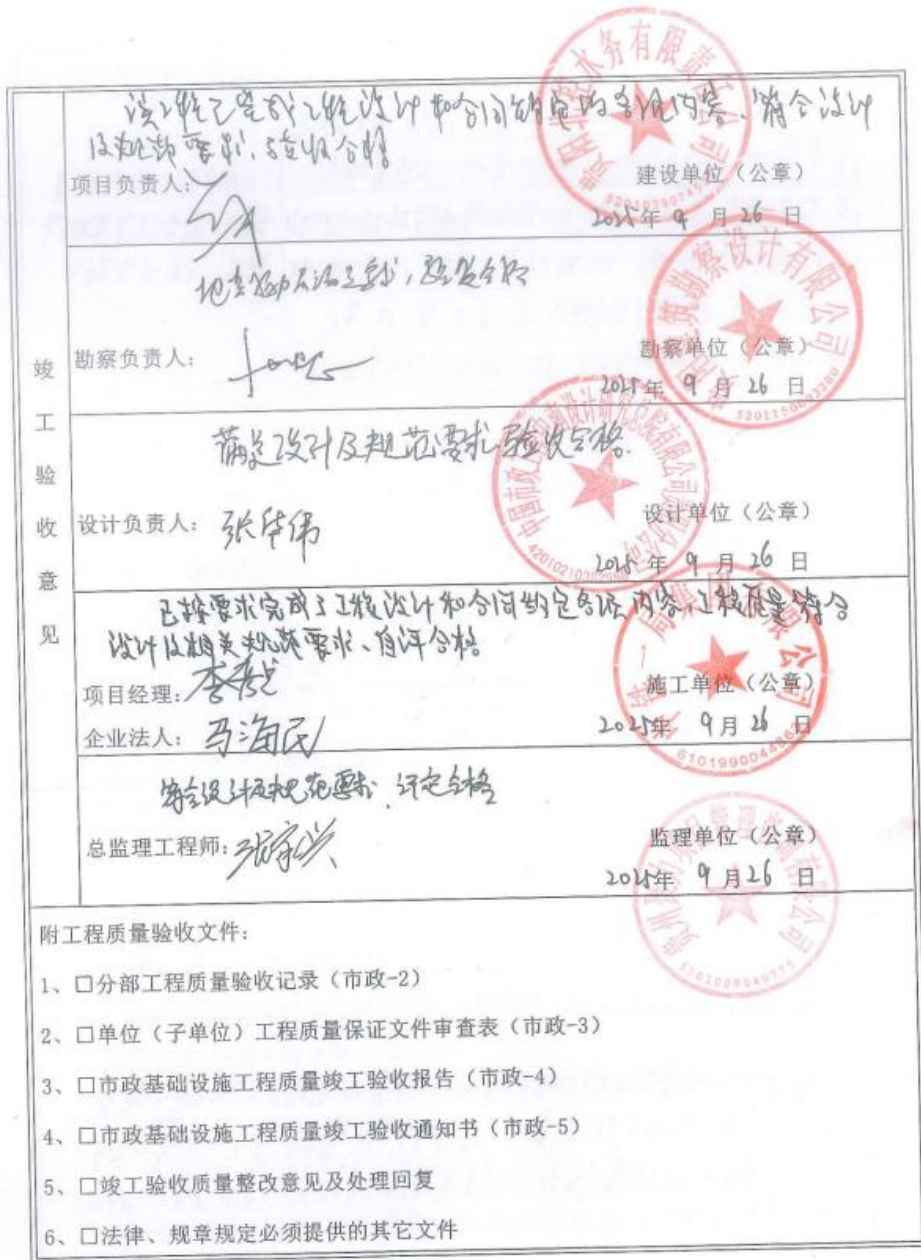 该工程已完成工程设计和合同约定的各项内容、符合设计
及规范要求、验收合格
项目负责人:
建设单位（公章）
2025年 9 月 26 日
验收合格
勘察负责人:
勘察单位（公章）
2025年 9 月 26 日
满足设计及规范要求 验收合格.
设计负责人: 张华伟
设计单位（公章）
2025年 9 月 26 日
已按要求完成了工程设计和合同约定各项内容,工程质量符合
设计及相关规范要求、自评合格
项目经理:
施工单位（公章）
企业法人: 马海民
2025年 9月 26 日
符合设计及规范要求,评定合格
总监理工程师:
监理单位（公章）
2025年 9 月 26 日
竣工验收意见
附工程质量验收文件:
1、□分部工程质量验收记录（市政-2）
2、□单位（子单位）工程质量保证文件审查表（市政-3）
3、□市政基础设施工程质量竣工验收报告（市政-4）
4、□市政基础设施工程质量竣工验收通知书（市政-5）
5、□竣工验收质量整改意见及处理回复
6、□法律、规章规定必须提供的其它文件